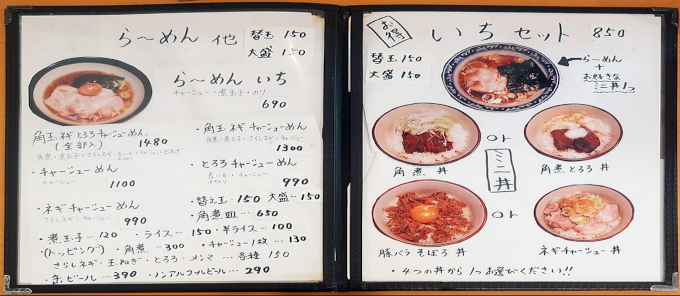 ら〜めん 他
替玉 150
大盛 150
ら〜めん いち
チャーシュー・煮玉子・のり
690
角玉ネギとろろチャーシューめん
(全部入) 1480
・角玉ネギチャーシューめん
1300
・チャーシューめん
チャーシュー
1100
・とろろチャーシューめん
990
・ネギチャーシューめん
990
・替え玉 150 大盛・150
・角煮皿… 650
・煮玉子…120 ・ライス…150 ・半ライス…100
(トッピング) ・角煮…300 ・チャーシュー1枚…130
さらしネギ・玉ねぎ・とろろ・メンマ…各種 150
・缶ビール…390 ・ノンアルコールビール…290
お得
いちセット 850
替玉 150
大盛 150
ら〜めん
+
お好きな
ミニ丼1つ
or
角煮丼
ミニ丼
角煮とろろ丼
or
豚バラそぼろ丼
ネギチャーシュー丼
・4つの丼から1つお選びください!!